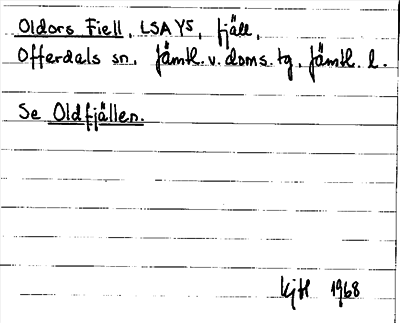 Oldors Fiell, LSA Y5, fjäll,
Offerdals sn, Jämtl. v. doms. tg, Jämtl. l.
Se Oldfjällen.
KjH 1968